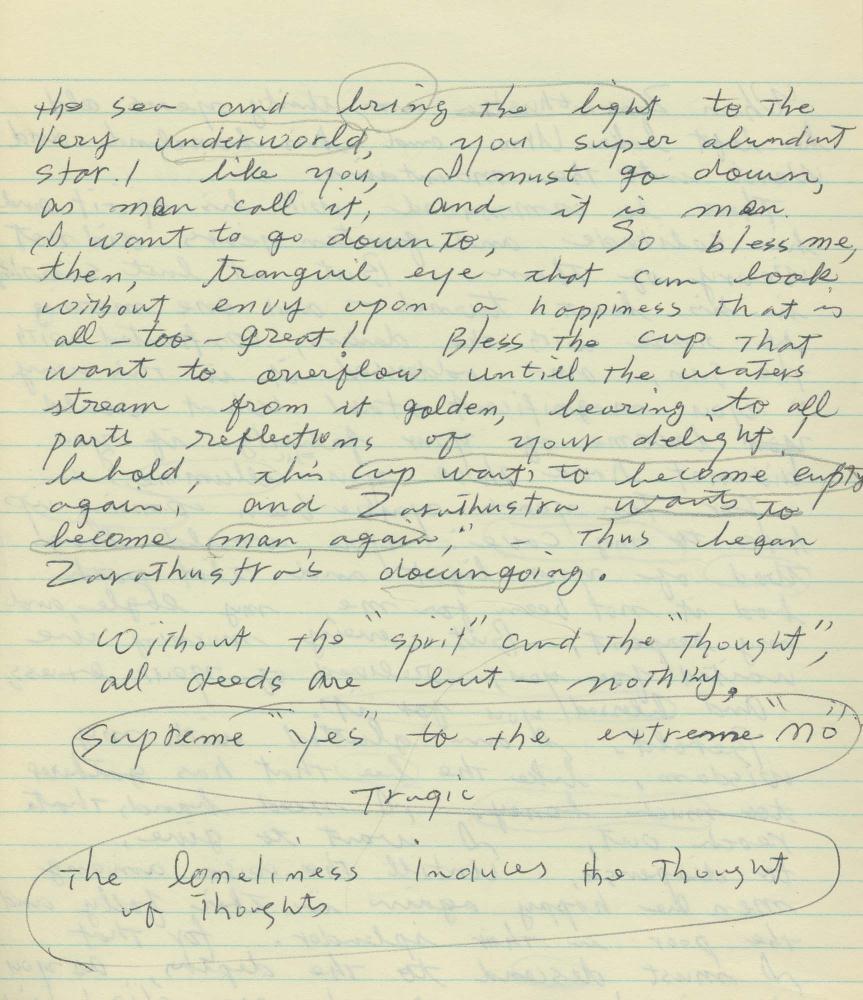 the sea and bring the light to the
very underworld, you super abundant
star! like you, I must go down,
as man call it, and it is man
I want to go down to, So bless me,
then, tranquil eye that can look
without envy upon a happiness that is
all-too-great! Bless the cup that
want to overflow untill the waters
stream from it golden, bearing to all
parts reflections of your delight!
behold, this cup wants to become empty
again, and Zarathustra wants to
become man again," - Thus began
Zarathustra's downgoing.
Without the "spirit" and the "Thought",
all deeds are but - nothing.
Supreme "Yes" to the extreme "no"
Tragic
The loneliness induces the Thought
of Thoughts